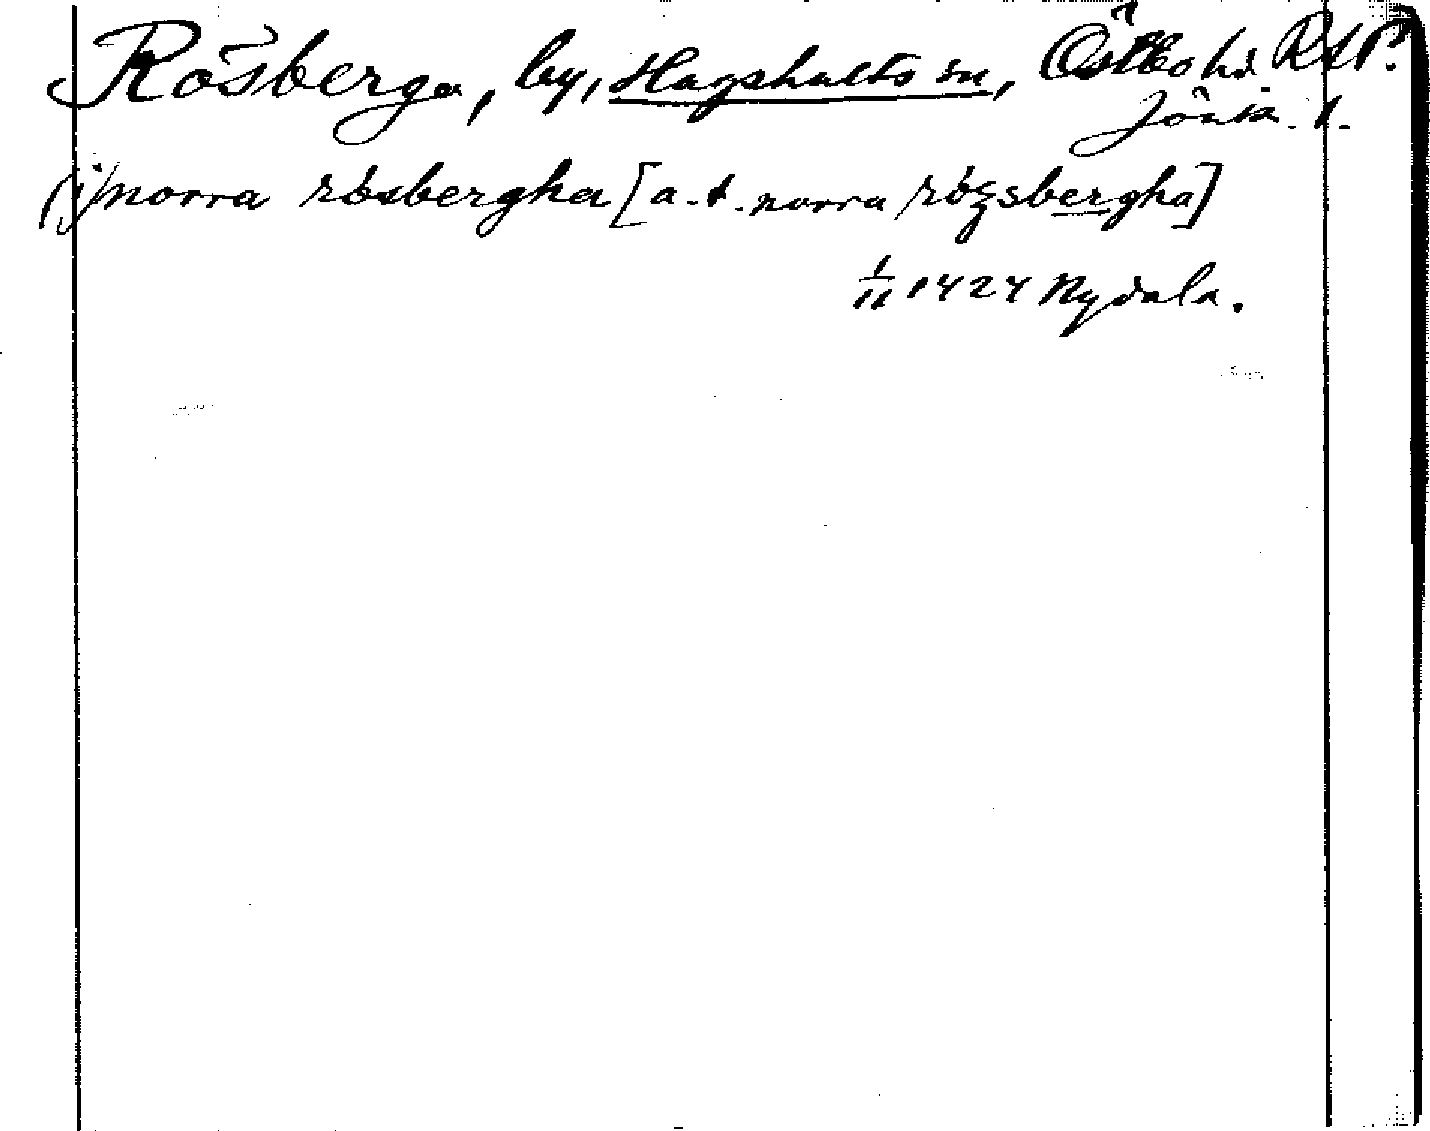 Rösberga, by, Hagshults sn, Östbo hd RAP.
Jönk. l.
(i) norra rösbergha [a.t. norra røgsbergha]
1/11 1424 Nydala.